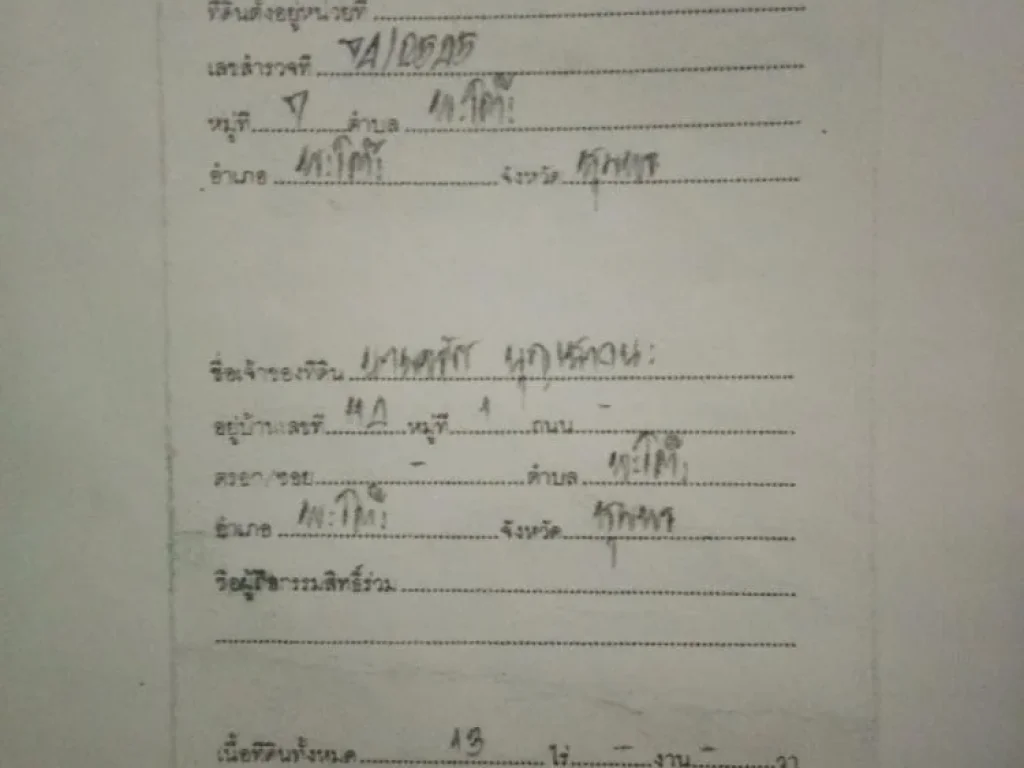 ที่ดินตั้งอยู่หน่วยที่
เลขสำรวจที่
หมู่ที่ 7 ตำบล พะโต๊ะ
อำเภอ พะโต๊ะ จังหวัด ชุมพร
ชื่อเจ้าของที่ดิน
อยู่บ้านเลขที่ หมู่ที่ 1 ถนน -
ตรอก/ซอย - ตำบล พะโต๊ะ
อำเภอ พะโต๊ะ จังหวัด ชุมพร
ชื่อผู้ถือกรรมสิทธิ์ร่วม
เนื้อที่ดินทั้งหมด 13 ไร่ - งาน - วา